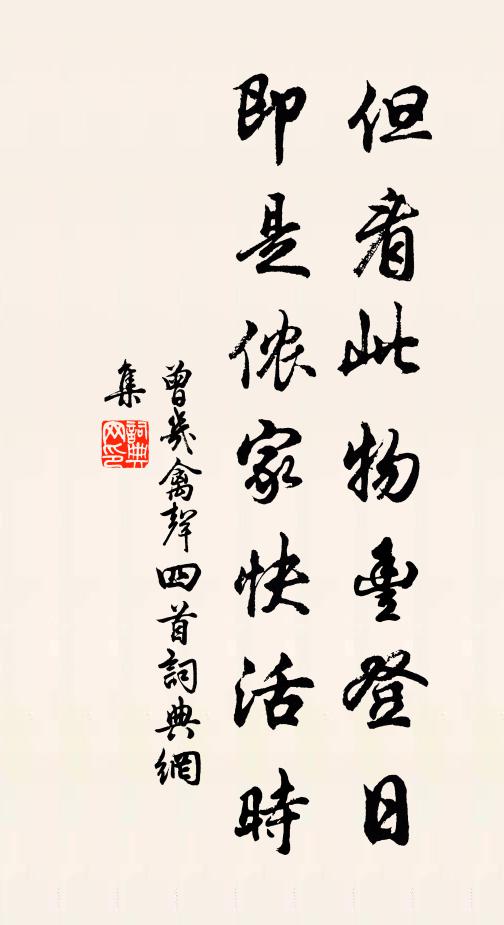 但看此物豐登日
即是儂家快活時
曾幾禽聲四首詞典網
集
詞典網印